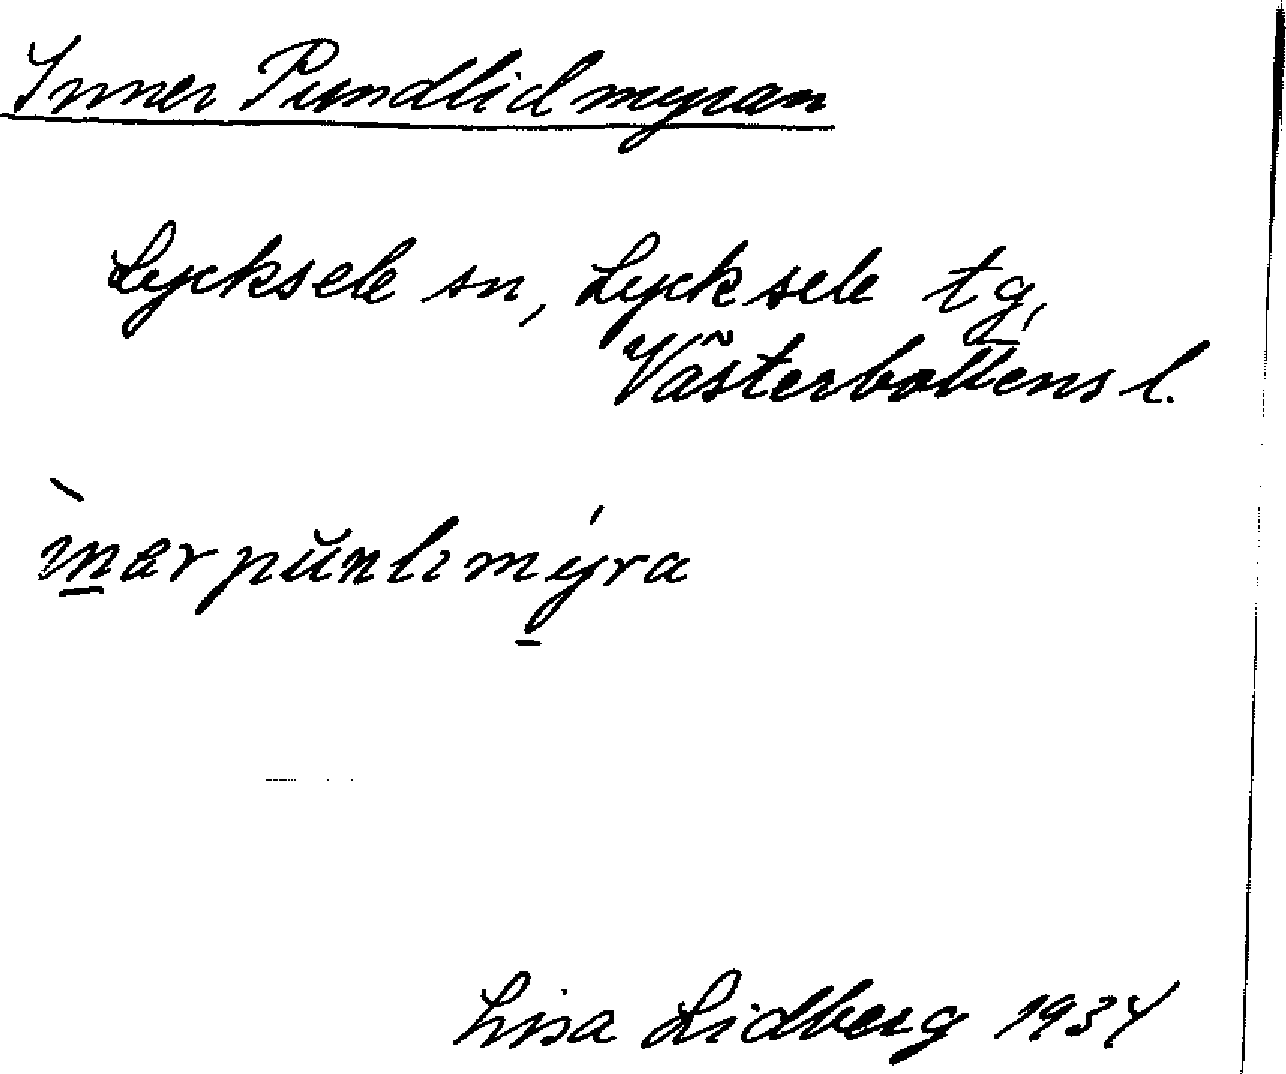 Inner Pundlidmyran
Lycksele sn, Lycksele tg,
Västerbottens l.
ìn̲ar pŭnlımý̲ra
Lisa Lidberg 1934